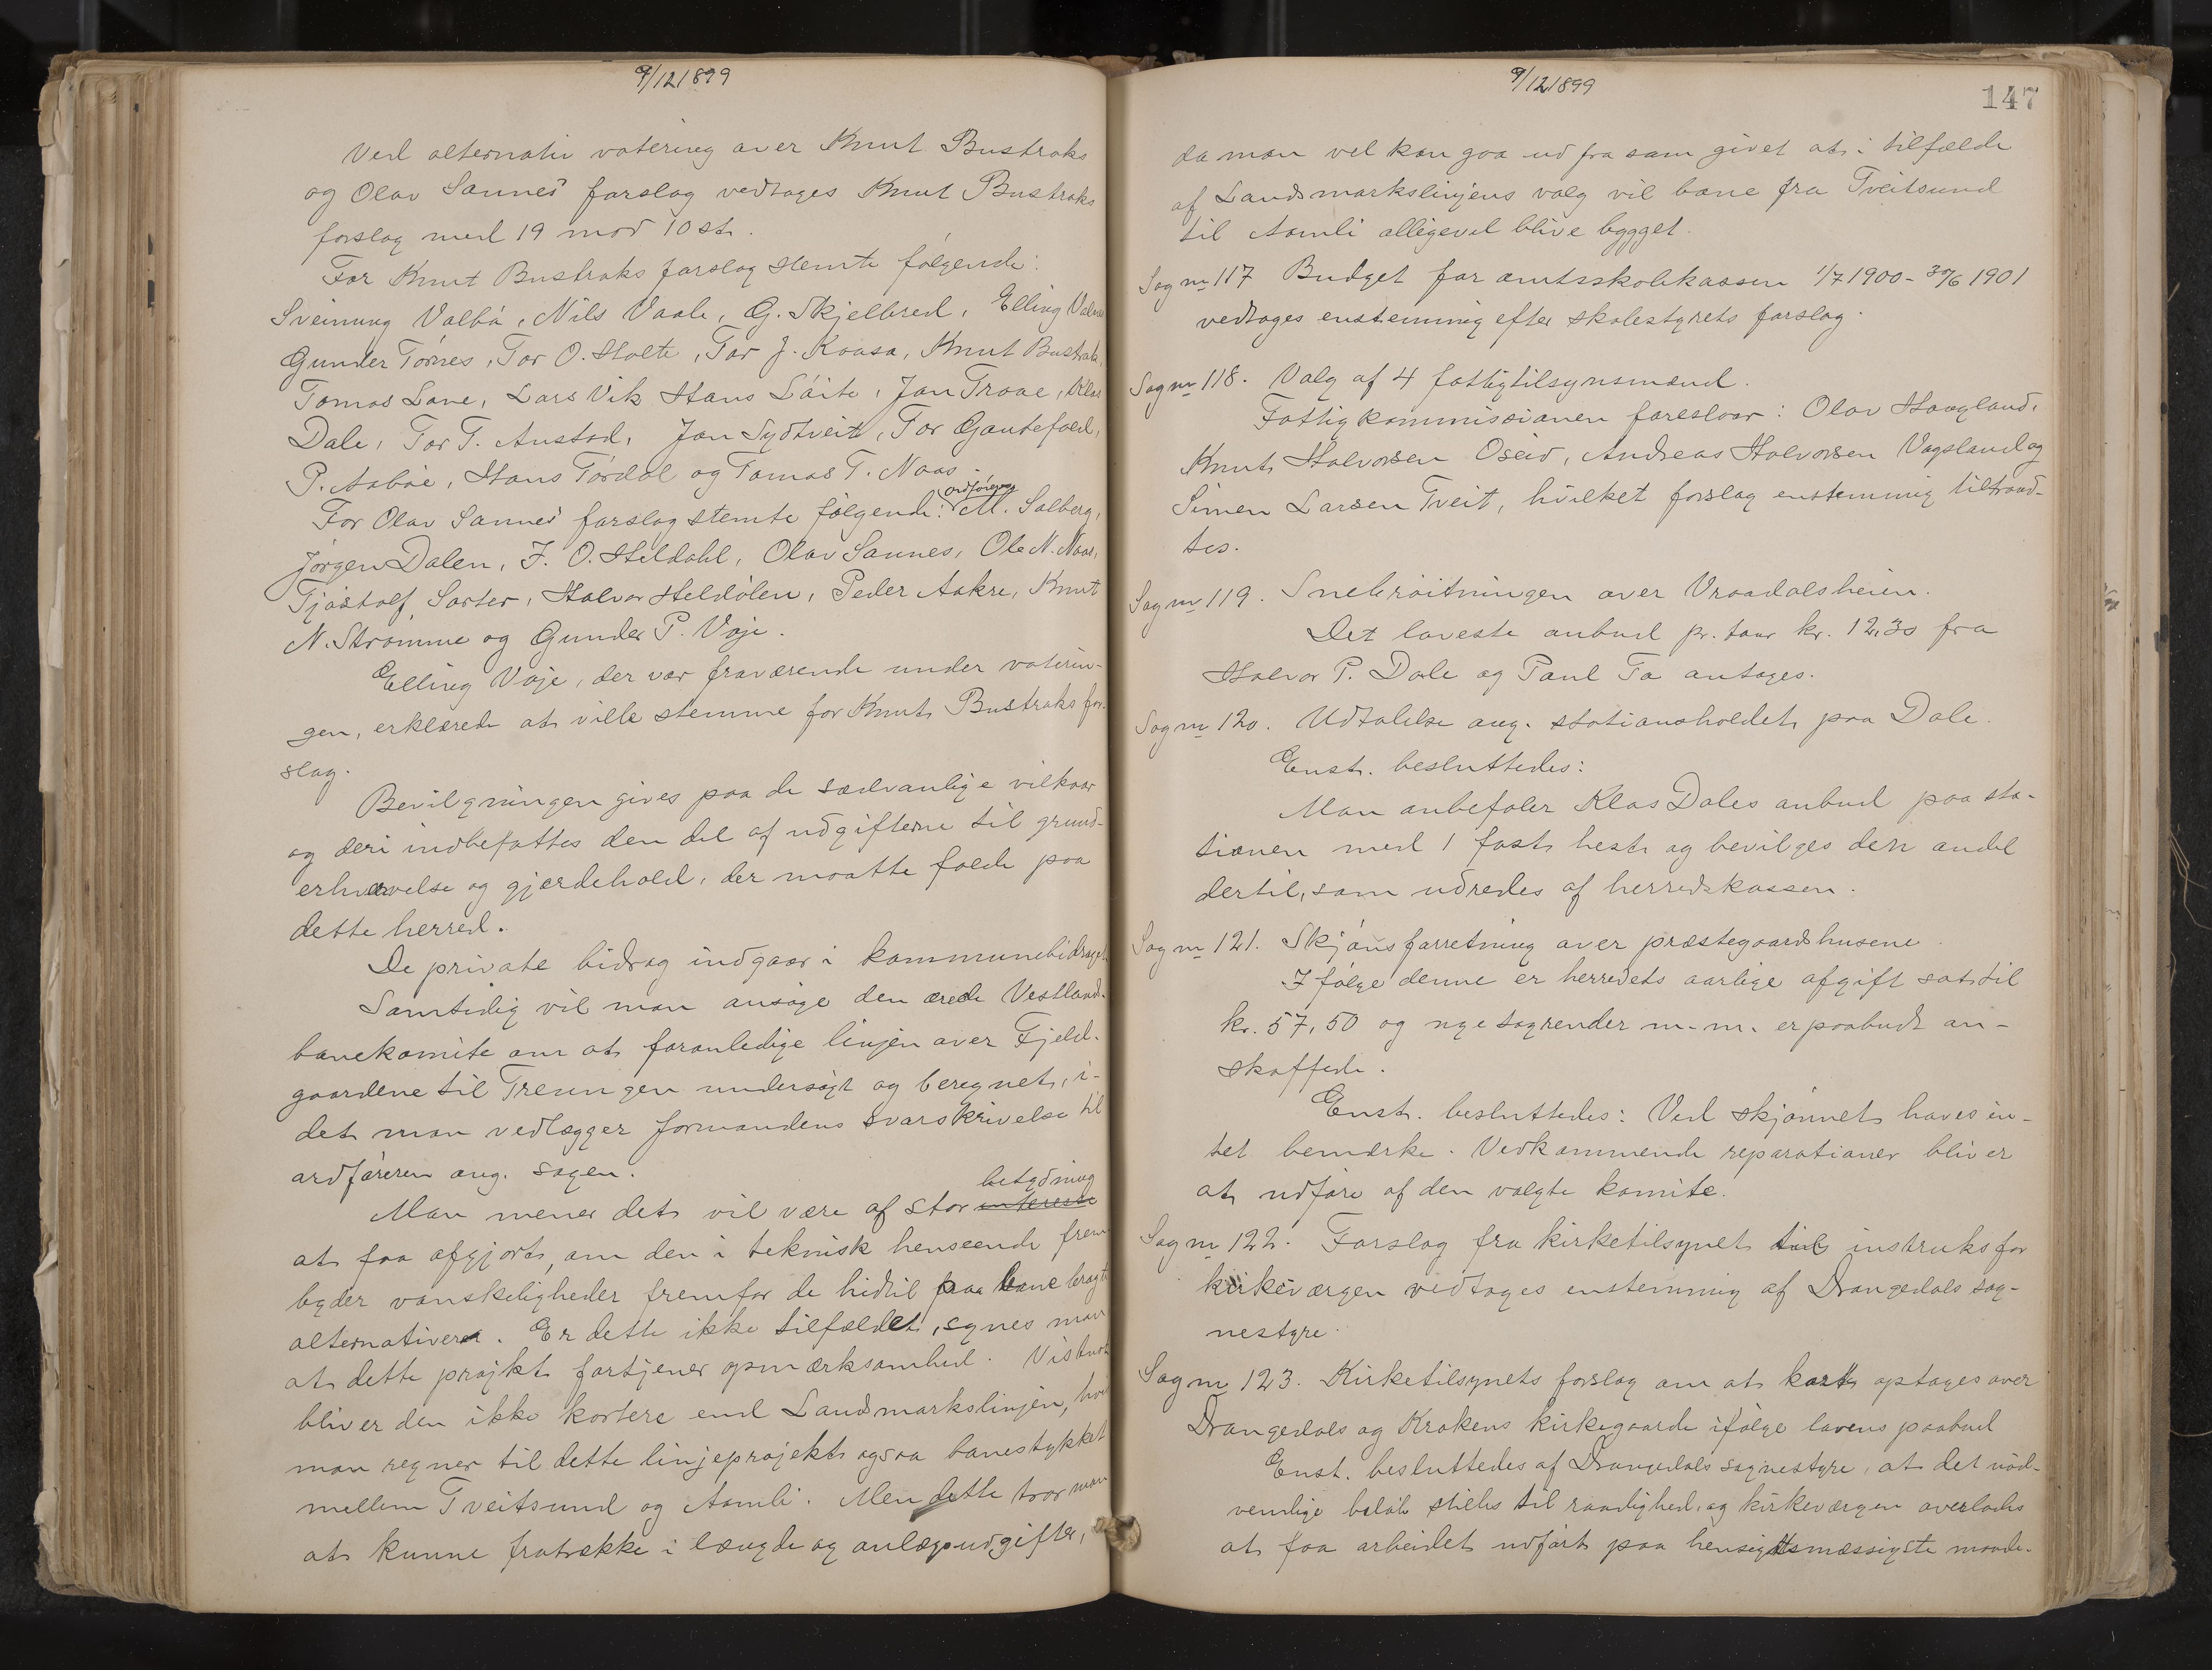 9/12 1899
Ved alternativ votering over Knut Bustraks
og Olav Sannes' forslag vedtages Knut Bustraks
forslag med 19 mod 10 st.
For Knut Bustraks forslag stemte følgende:
Sveinung Valbö, Nils Vaale, G. Skjelbred, Elling
Gunder Törnes, Tor O. Holte, Tor J. Kaasa, Knut Bustrak,
Tomas Lone, Lars Vik Hans Löite, Jon Traae, Klas
Dale, Tor T. Austad, Jon Sydtveit, Tor Gautefald,
P. Aaböe, Hans Tördal og Tomas T. Naas.
For Olav Sannes' forslag stemte følgende: Ordföreren M. Solberg,
Jörgen Dalen, F. O. Heldahl, Olav Sannes, Ole N. Naas,
Tjöstolf Sorter, Halvor Heldölen, Peder Aakre, Knut
N. Strömme og Gunder P. Voje.
Elling Voje, der var fraværende under voterin-
gen, erklærede at ville stemme for Knut Bustraks for-
slag.
Bevilgningen gives paa de sædvanlige vilkaar
og deri indbefattes den del af udgifterne til grund-
erhvervelse og gjerdehold, der maatte falde paa
dette herred.
De private bidrag indgaar i kommunebidraget.
Samtidig vil man ansöge den ærede Vestland-
banekomite om at foranledige linjen over Fjeld-
gaardene til Treungen undersögt og beregnet, i-
det man vedlægger formandens svarskrivelse til
ordföreren ang. sagen.
Man mener det vil være af stor interesse betydning
at faa afgjort, om den i teknisk henseende frem-
byder vanskeligheder fremfor de hidtil paa bane bragte
alternativer. Er dette ikke tilfældet, synes man
at dette projekt fortjener opmærksomhed. Vistnok
bliver den ikke kortere end Landsmarkslinjen, hvis
man regner til dette linjeprojekt ogsaa banestykket
mellem Tveitsund og Aamli. Men dette tror man
at kunne fratrække i længde og anlægsudgifter,
9/12 1899
147
da man vel kan gaa ud fra som givet at i tilfælde
af Landsmarkslinjens valg vil bane fra Tveitsund
til Aamli alligevel blive bygget.
Sag nr 117 Budget for amtsskolekassen 1/7 1900 - 30/6 1901
vedtages enstemmig efter skolestyrets forslag.
Sag nr 118. Valg af 4 fattigtilsynsmænd.
Fattigkommissionen foreslaar: Olav Haugland,
Knut Halvorsen Oseid, Andreas Halvorsen Vogsland og
Simen Larsen Tveit, hvilket forslag enstemmig tiltraad-
tes.
Sag nr 119. Snebröitningen over Vraadalsheien.
Det laveste anbud pr. tour kr. 12,30 fra
Halvor P. Dale og Paul To antages.
Sag nr 120. Udtalelse ang. stationsholdet paa Dale.
Enst. besluttedes:
Man anbefaler Klas Dales anbud paa sta-
tionen med 1 fast hest og bevilges den andel
dertil, som udredes af herredskassen.
Sag nr 121. Skjönsforretning over præstegaardshusene.
Ifølge denne er herredets aarlige afgift sat til
kr. 57,50 og nye tagrender m.m. er paabudt an-
skaffede.
Enst. besluttedes: Ved skjönnet haves in-
tet bemerke. Vedkommende reparationer bliver
at udföre af den valgte komite.
Sag nr 122. Forslag fra kirketilsynet til instruks for
kirkeværgen vedtages enstemmig af Drangedals sog-
nestyre.
Sag nr 123. Kirketilsynets forslag om at kart optages over
Drangedals og Krokens kirkegaarde ifölge lovens paabud
Enst. besluttedes af Drangedals sognestyre, at det nöd-
vendige belöb stilles til raadighed, og kirkeværgen overlades
at faa arbeidet udfört paa hensigtsmæssigste maade.